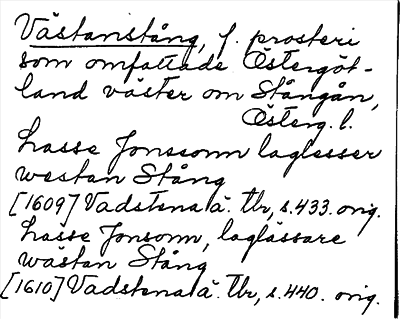 Västanstång, f. prosteri
som omfattade Östergöt-
land väster om Stångån,
Österg. l.
Lasse Jonssonn laglesser
westan Stång
[1609] Vadstena ä. Tb, s. 433. orig.
Lasse Jonsonn, laglässare
wästan Stång
[1610] Vadstena ä. Tb, s. 440. orig.